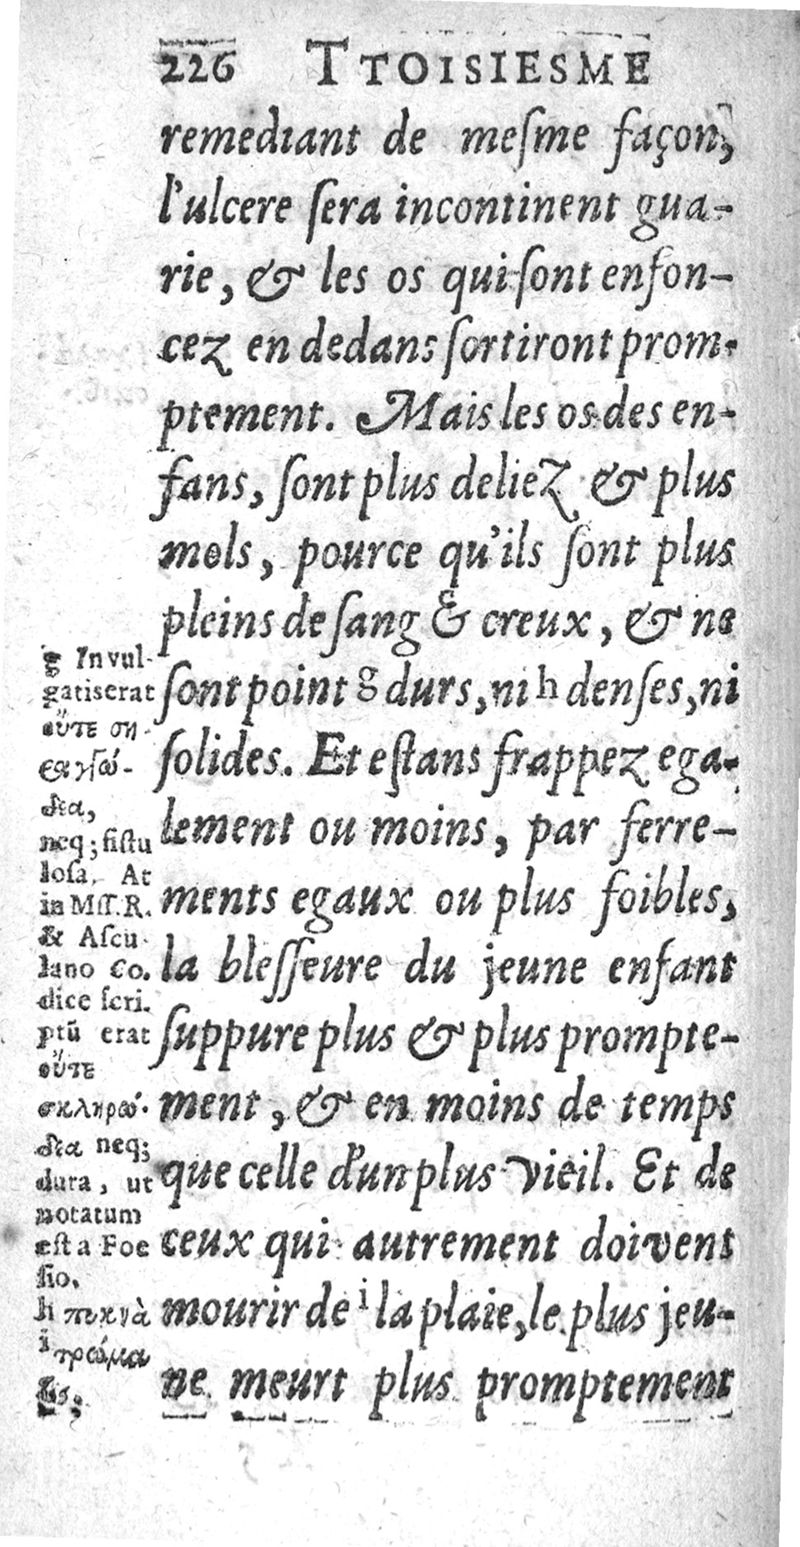 226 TTOISIESME
remediant de meſme façon,
l'ulcere ſera incontinent gua-
rie, & les os qui ſont enfon-
cez en dedans ſortiront prom-
ptement. Mais les os des en-
fans, ſont plus deliez & plus
mols, pource qu'ils ſont plus
pleins de ſang & creux, & ne
ſont point g durs, ni h denſes, ni
ſolides. Et eſtans frappez ega-
lement ou moins, par ferre-
ments egaux ou plus foibles,
la bleſſeure du jeune enfant
ſuppure plus & plus prompte-
ment, & en moins de temps
que celle d'un plus vieil. Et de
ceux qui autrement doivent
mourir de i la plaie, le plus jeu-
ne meurt plus promptement
g In vul-
gatis erat
οὔτε ση-
ραγγώ-
δεα,
neq; fiſtu
loſa. At
in Mſſ. R.
& Aſcu-
lano Co.
dice ſcri.
ptũ erat
οὔτε
σκληρώ-
δεα neq;
dura, ut
notatum
eſt a Foe
ſio.
h πυκνὰ
i τρώμα